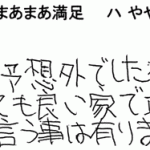 まあまあ満足 ハ やや
予想外でした
も良い家で
言う事は有りま